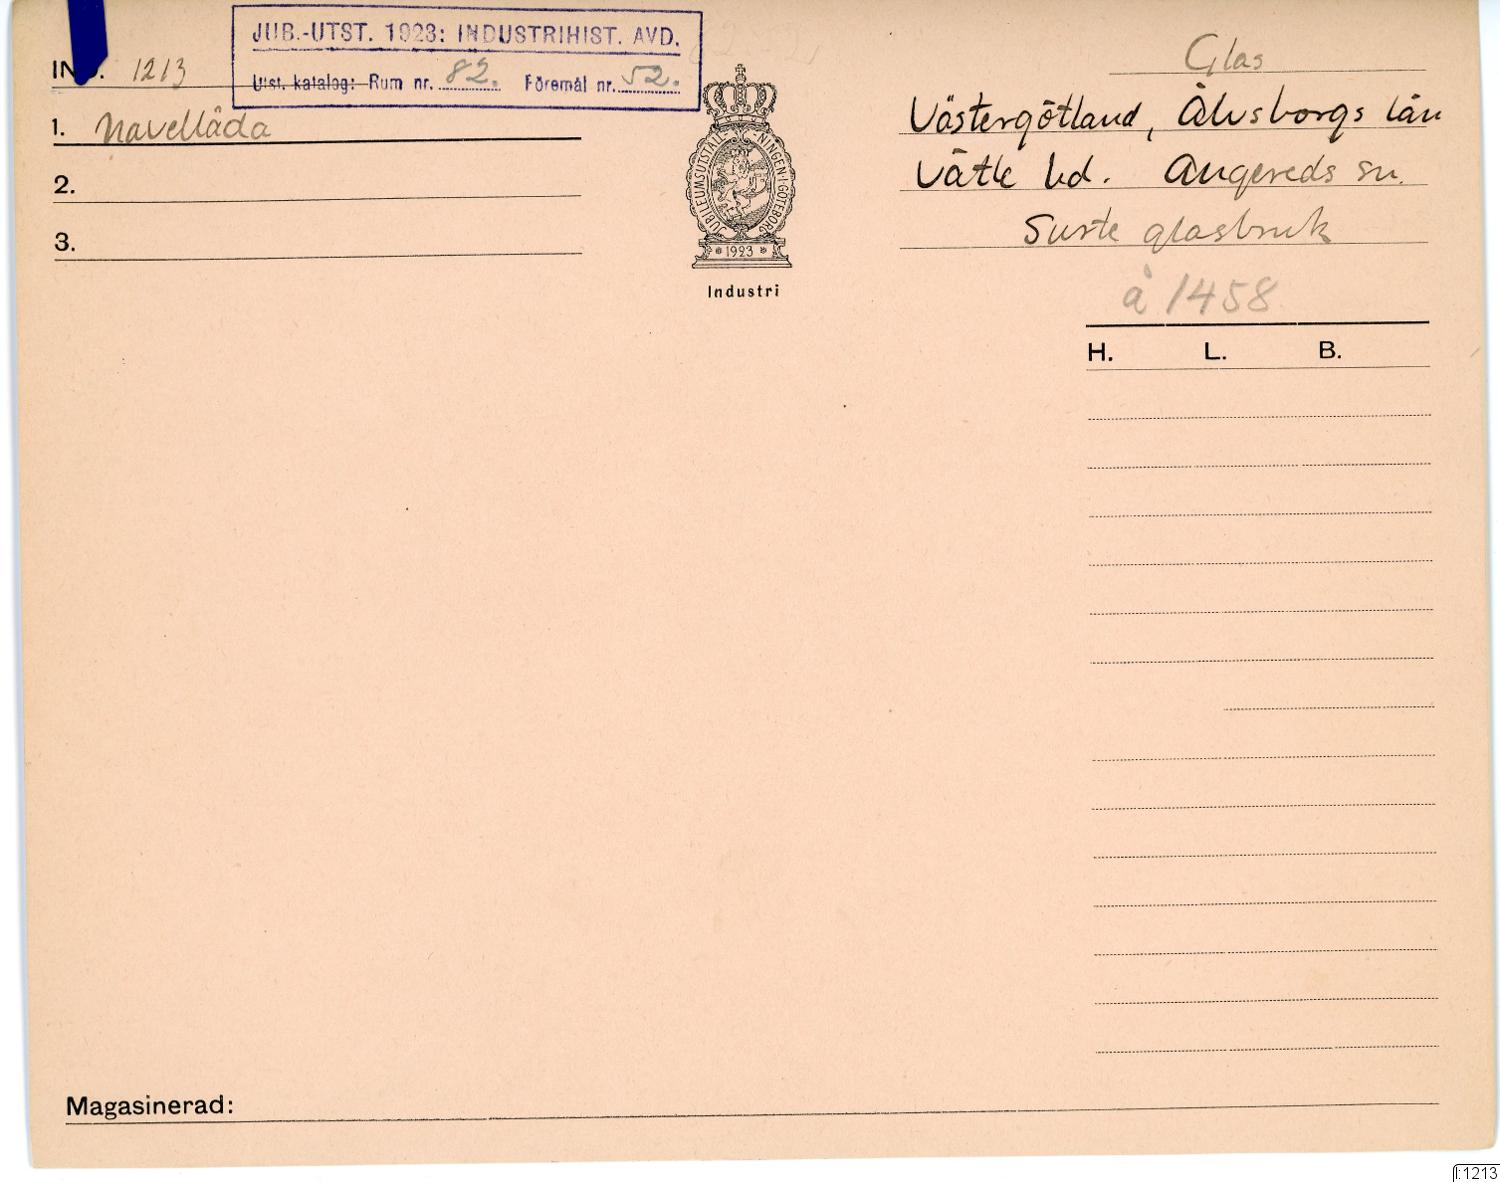 JUB.-UTST. 1923: INDUSTRIHIST. AVD.
Utst. katalog: Rum nr. 82. Föremål nr. 52.
1213
1. Navellåda
2.
3.
JUBILEUMSUTSTÄLLNINGEN·I·GÖTEBORG
* 1923 *
Industri
Glas
Västergötland, Älvsborgs län
Vätle hd. Angereds sn.
Surte glasbruk
å 1458
H. L. B.
Magasinerad:
I:1213